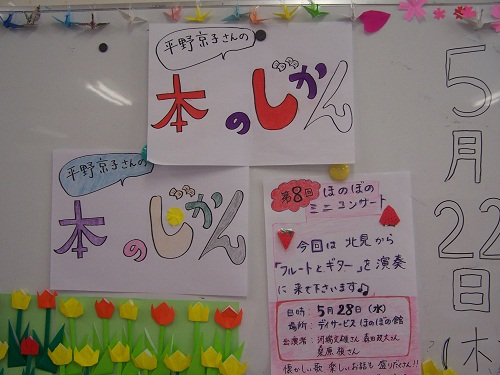 平野京子さんの
本のじかん
平野京子さんの
本のじかん
第8回 ほのぼの
ミニコンサート
今回は 北見から
「フルートとギター」を演奏
に来て下さいます♪
日時: 5月28日(水)
場所: デイサービス ほのぼの館
出演者:
懐かしい歌 楽しいお話も 盛りだくさん!!
5月
22日
(木